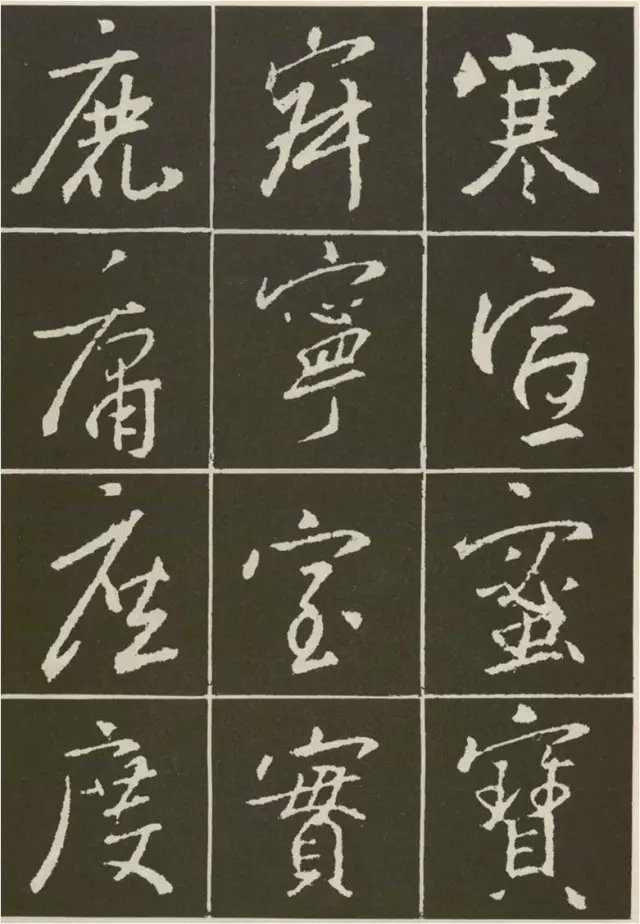 寒宣蜜寶
寧室實
鹿庸座度